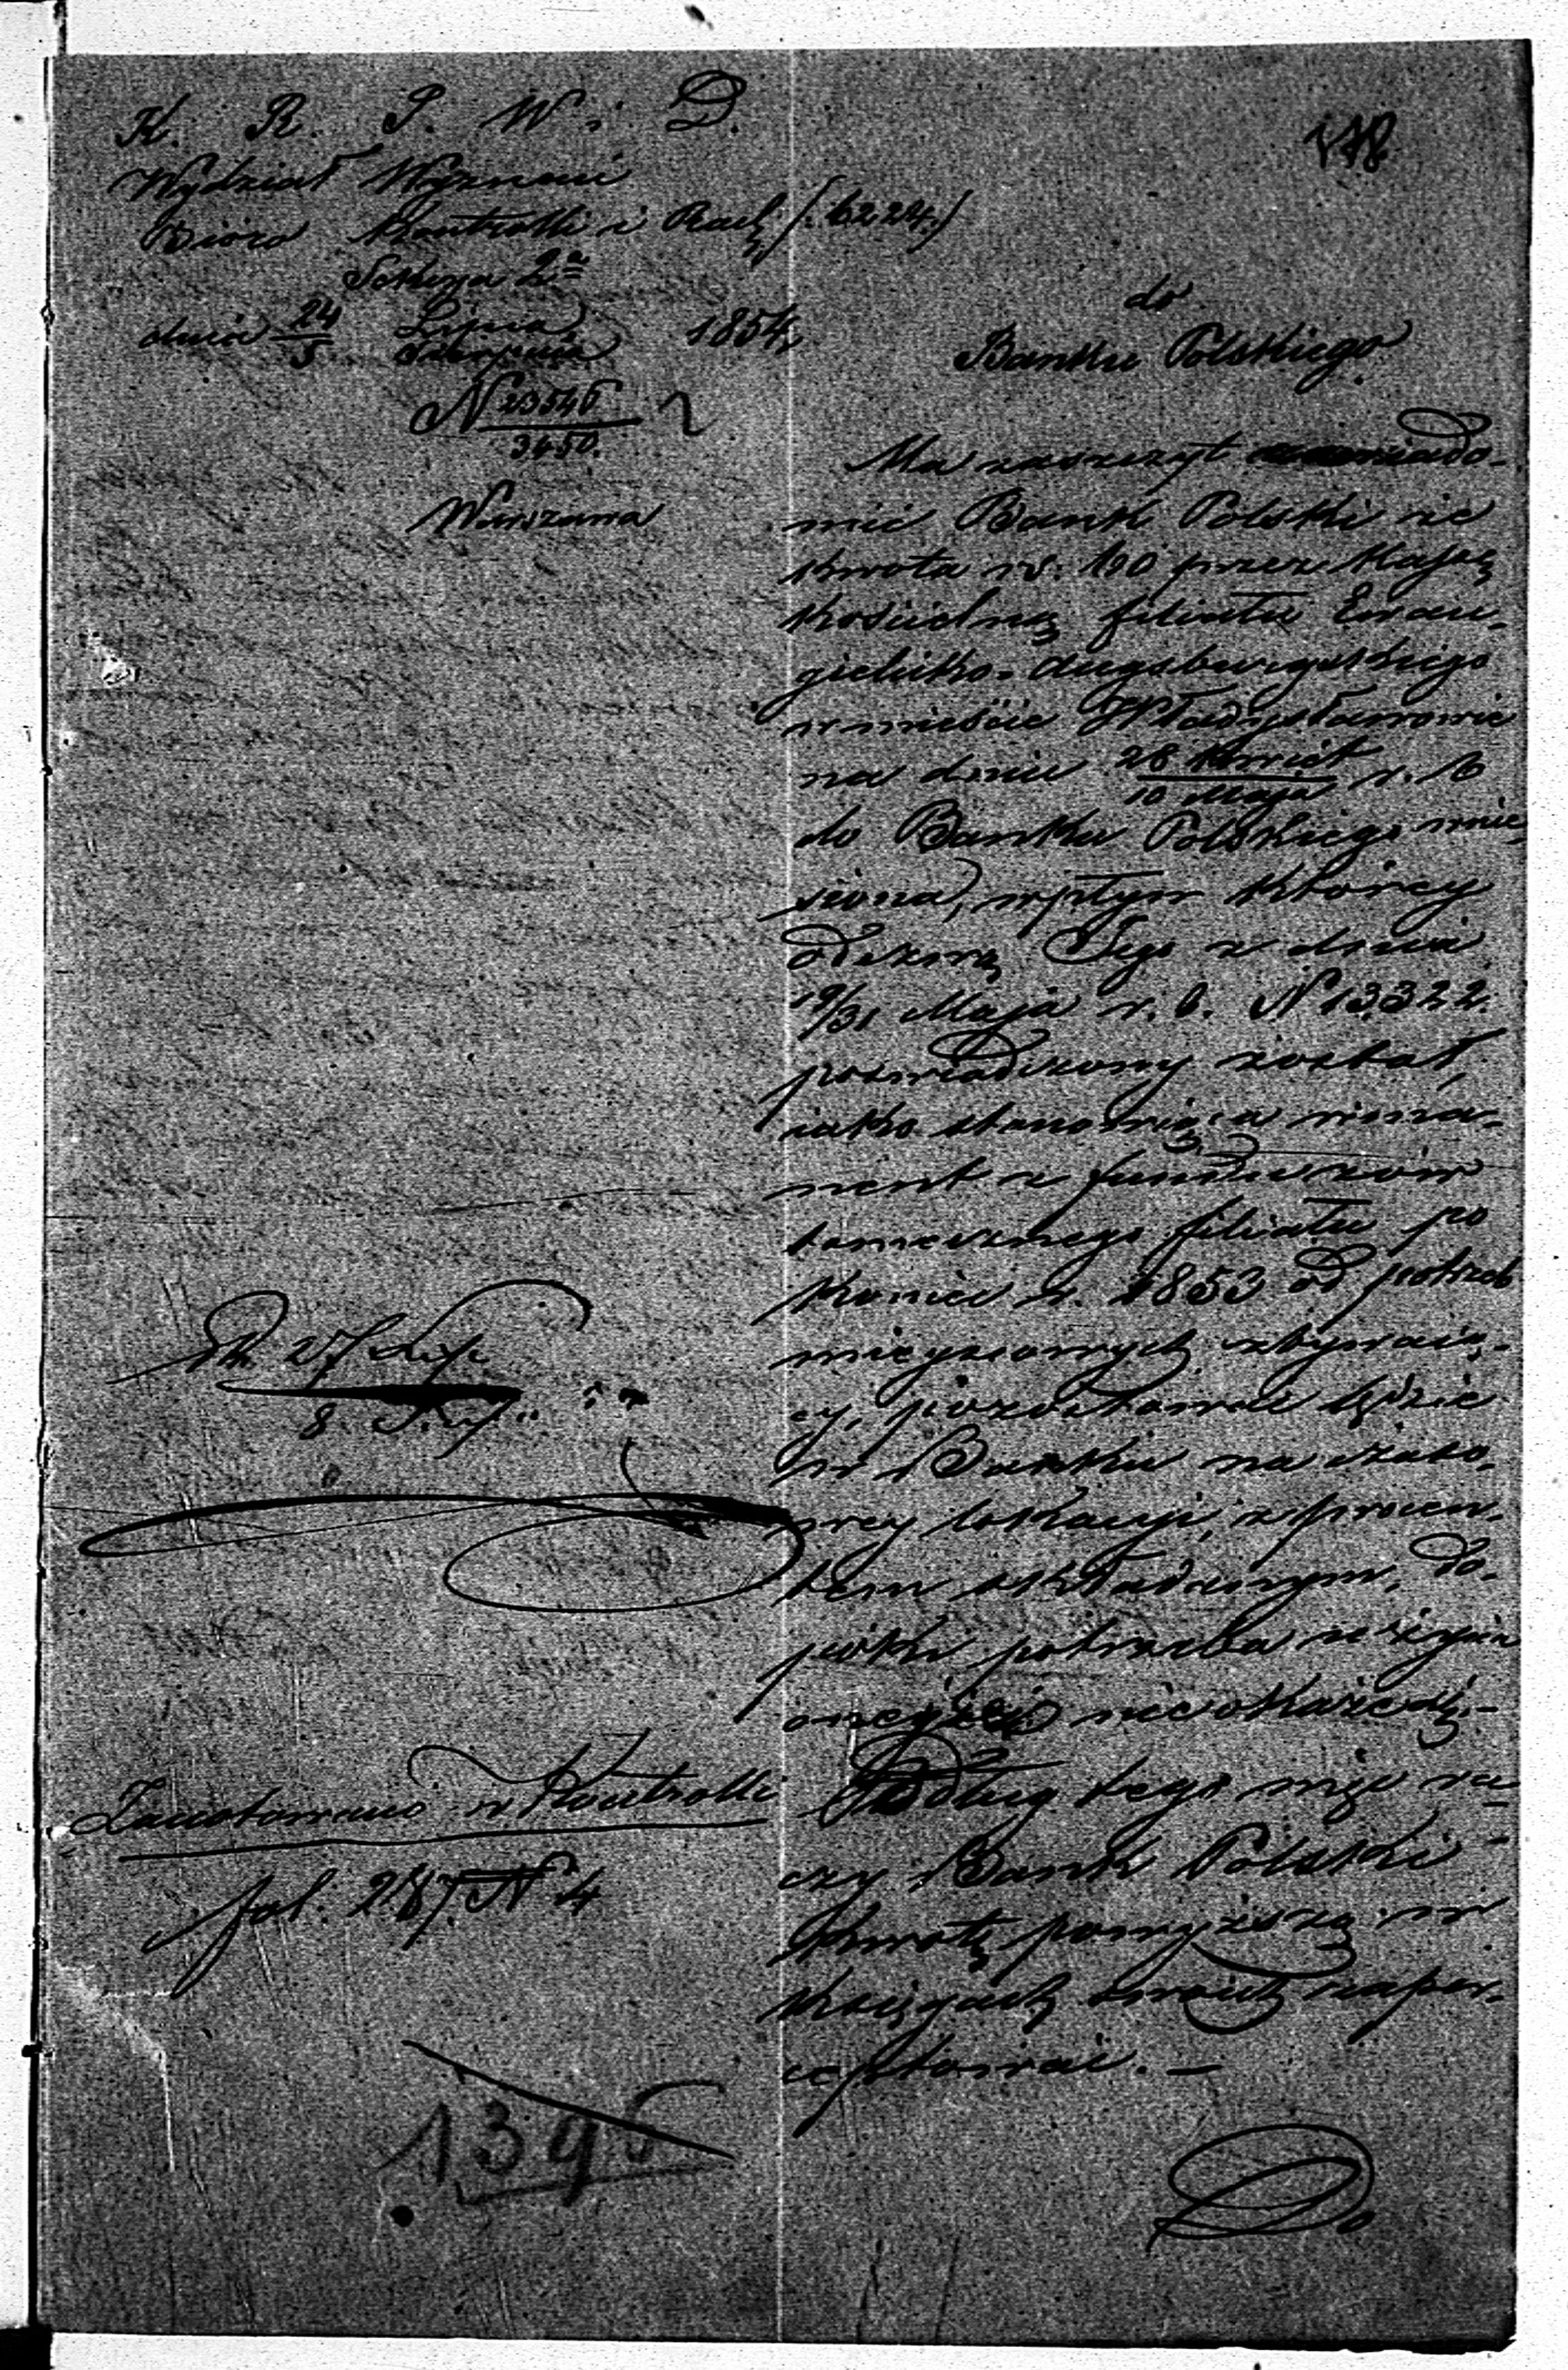 K. R. S. W. i D.
Wydział Wyznań
Bióro Kontrolli i Rach. (6224)
Sekcya 2ª
dnia 24/5 Lipca/Sierpnia 1854
N 23546/3450.
Warszawa
do
Banku Polskiego
Ma zaszczyt zawiado-
mić Bank Polski że
kwota rs. 100 przez Kassę
kościelną filiału Ewan-
gielicko-Augsburgskiego
w mieście Władysławowie
na dniu 28 Kwiet/10 Maja r. b
do Banku Polskiego wnie
siona, wpływ której
odezwą Jego z dnia
19/31 Maja r. b. N 13322.
poświadczony został,
jako stanowiąca rema-
nent z funduszów
tamecznego filiału po
koniec r. 1853 od potrzeb
miejscowych zbywają-
cy, pozostawać będzie
w Banku na
lokacyi, z procen-
tem składanym, do-
póki potrzeba użycia
onejże nie okaże się.-
Podług tego więc ra-
czy Bank Polski
kwotę powyższą w
księgach swoich zaper-
ceptować. —
Do
27 Lip
8
Zanotowano w Kontrolli
fol. 287. N 4
1396